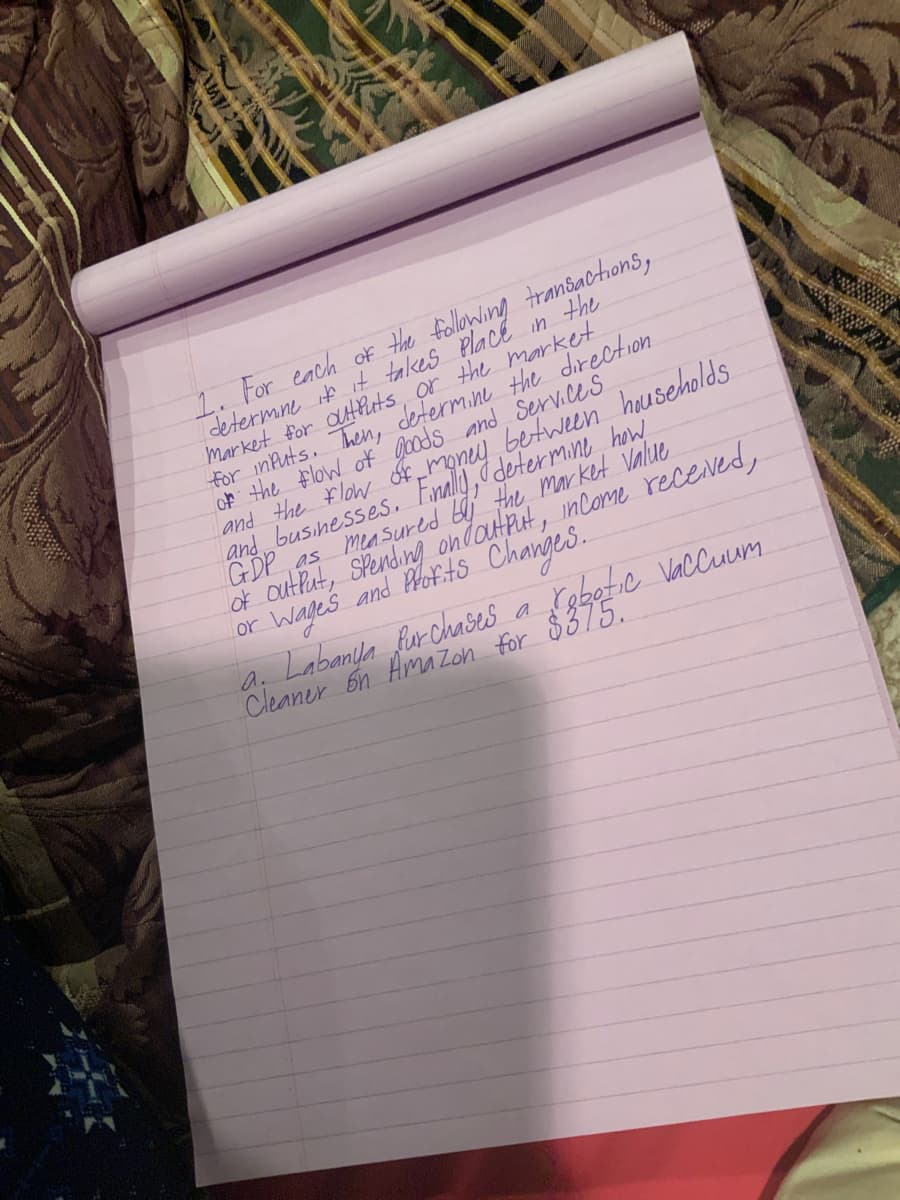 1. For each of the following transactions,
determine if it takes place in the
market for outputs or the market
for inputs. Then, determine the direction
of the flow of goods and services
and the flow of money between households
and businesses. Finally, determine how
GDP as measured by the market value
of output, spending on output, income received,
or wages and profits changes.
a. Labanya purchases a robotic vaccuum
cleaner on Amazon for $375.